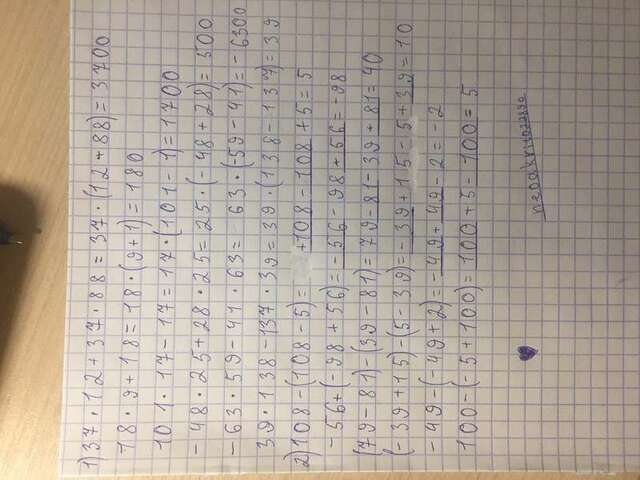 1) 37 · 12 + 37 · 88 = 37 · (12 + 88) = 3700
18 · 9 + 18 = 18 · (9 + 1) = 180
101 · 17 - 17 = 17 · (101 - 1) = 1700
- 48 · 25 + 28 · 25 = 25 · (- 48 + 28) = 500
- 63 · 59 - 41 · 63 = 63 · (-59 - 41) = - 6300
39 · 138 - 137 · 39 = 39 · (138 - 137) = 39
2) 108 - (108 - 5) = +108 - 108 + 5 = 5
- 56 + (- 98 + 56) = - 56 - 98 + 56 = -98
(79 - 81) - (39 - 81) = 79 - 81 - 39 + 81 = 40
(- 39 + 15) - (5 - 39) = - 39 + 15 - 5 + 39 = 10
- 49 - (- 49 + 2) = - 49 + 49 - 2 = - 2
100 - (- 5 + 100) = 100 + 5 - 100 = 5